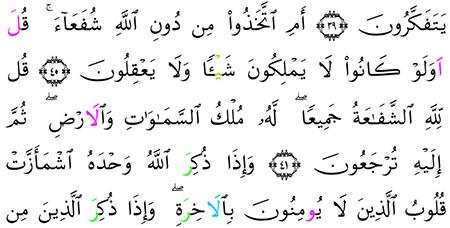 يَتَفَكَّرُونَ ۝٣٩ أَمِ ٱتَّخَذُواْ مِن دُونِ ٱللَّهِ شُفَعَآءَ ۚ قُلَ
اَوَلَوْ كَانُواْ لَا يَمْلِكُونَ شَيْـًٔا وَلَا يَعْقِلُونَ ۝٤٠ قُل
لِّلَّهِ ٱلشَّفَٰعَةُ جَمِيعًا ۖ لَّهُۥ مُلْكُ ٱلسَّمَٰوَٰتِ وَٱلَارْضِ ۖ ثُمَّ
إِلَيْهِ تُرْجَعُونَ ۝٤١ وَإِذَا ذُكِرَ ٱللَّهُ وَحْدَهُ ٱشْمَأَزَّتْ
قُلُوبُ ٱلَّذِينَ لَا يُومِنُونَ بِٱلَاخِرَةِ ۖ وَإِذَا ذُكِرَ ٱلَّذِينَ مِن